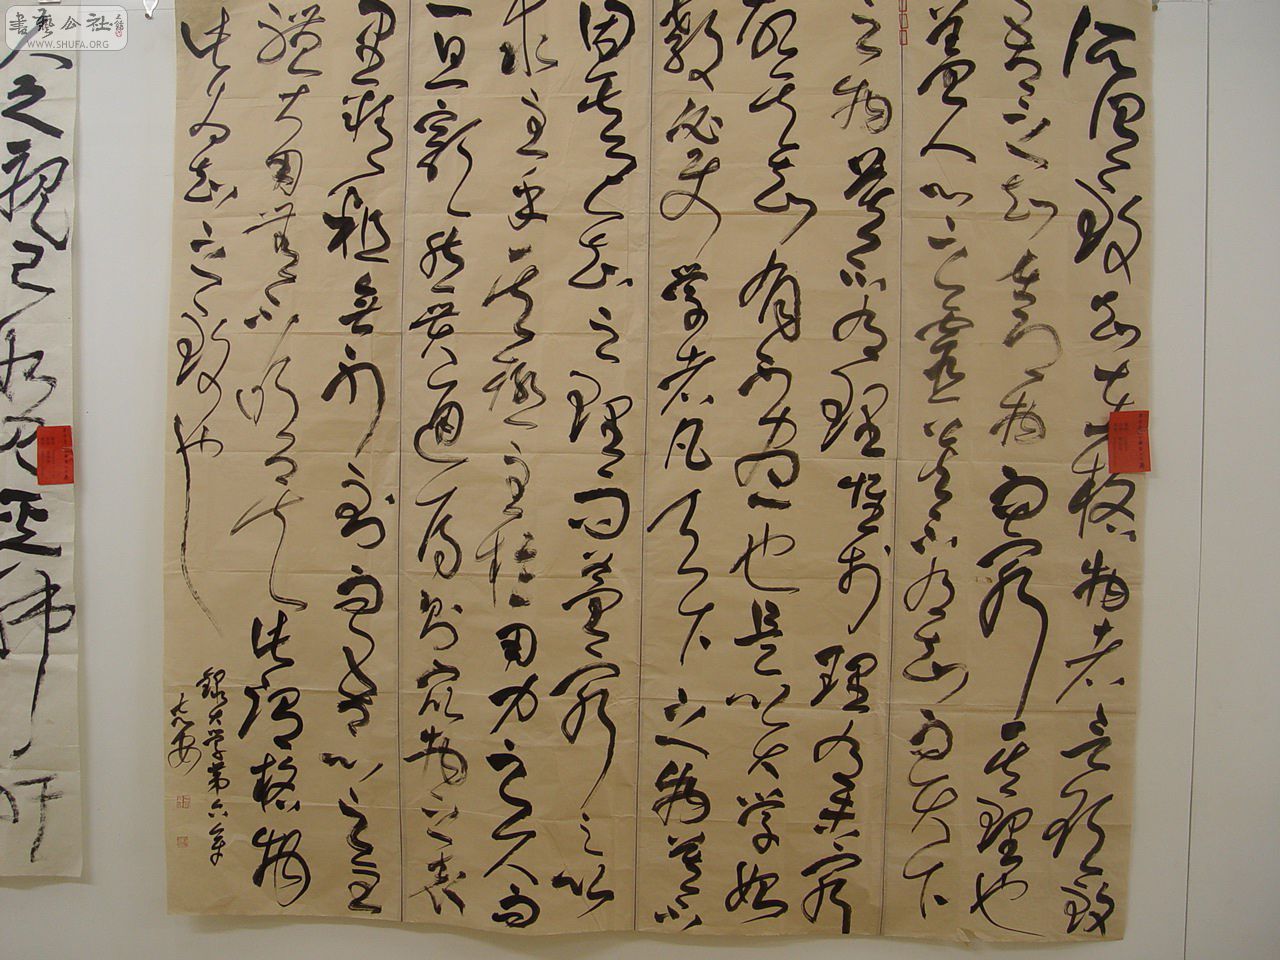 書藝公社
WWW.SHUFA.ORG
所謂致知在格物者言欲致
吾之知在即物而窮其理也
蓋人心之靈莫不有知而天下
之物莫不有理惟於理有未窮
故其知有不盡也是以大學始
教必使學者即凡天下之物莫不
因其已知之理而益窮之以
求至乎其極至於用力之久而
一旦豁然貫通焉則眾物之表
裏精粗無不到而吾心之全
體大用無不明矣此謂格物
此為知之致也
錄大學第六章